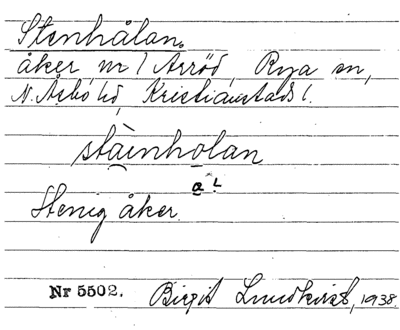 Stenhålan.
åker nr 1 Arröd, Rya sn,
N. Åsbo hd, Kristianstads l.
stàinholan
a L
Stenig åker.
Nr 5502. Birgit Lundkvist, 1938.